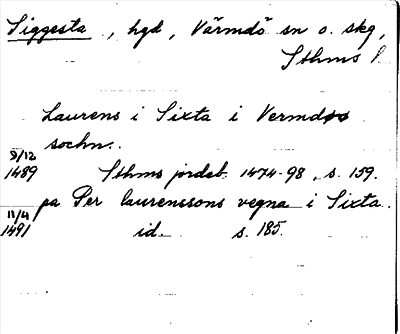 Siggesta, hgd, Värmdö sn o. skg,
Sthms l.
Laurens i Sixta i Vermdöö
sochn.
9/12
1489 Sthms jordeb. 1474-98, s. 159.
pa Per laurenssons vegna i Sixta.
11/4
1491 id. s. 185.